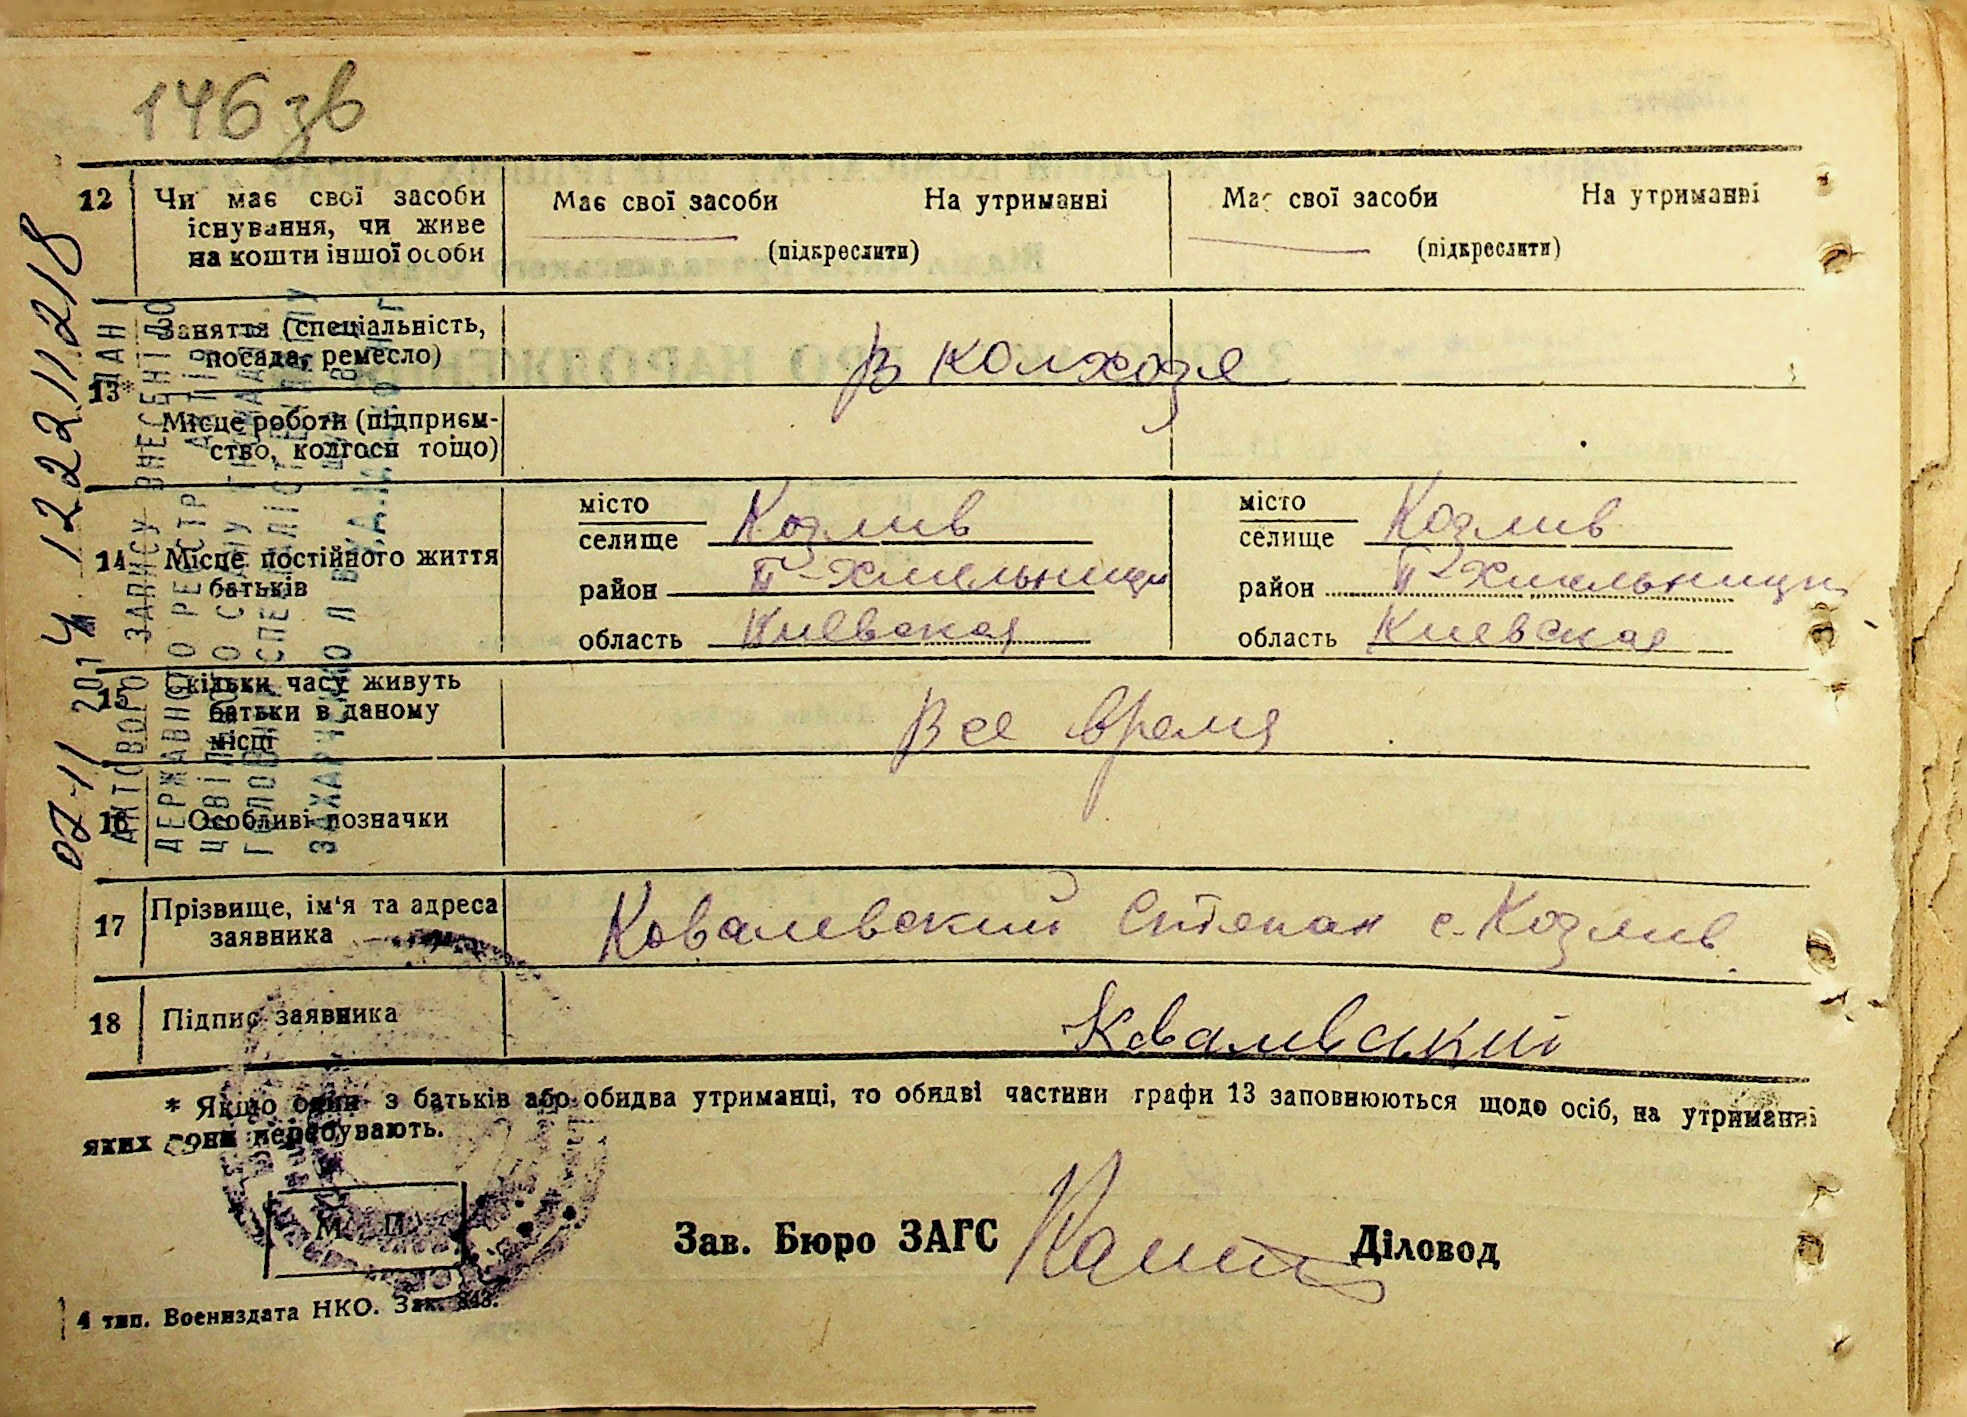 146 зв
12
Чи має свої засоби
існування, чи живе
на кошти іншої особи
Має свої засоби На утриманні
(підкреслити)
Має свої засоби На утриманні
(підкреслити)
13*
Заняття (спеціальність,
посада, ремесло)
в колхозя
Місце роботи (підприєм-
ство, колгосп тощо)
14
Місце постійного життя
батьків
місто
селище Козлив
район П-Хмельницк
область Киевская
місто
селище Козлив
район П-Хмельницк
область Киевская
15
Скільки часу живуть
батьки в даному
місці
Все время
16
Особливі позначки
17
Прізвище, ім'я та адреса
заявника
Ковалевский Степан с. Козлив
18
Підпис заявника
Ковалевський
* Якщо один з батьків або обидва утриманці, то обидві частини графи 13 заповнюються щодо осіб, на утриманні
яких вони перебувають.
М. П.
Зав. Бюро ЗАГС
Діловод
4 тип. Воениздата НКО. Зак. 343.
07-11 2014 12221128
ДАНІ
АКТОВОГО ЗАПИСУ ВНЕСЕНІ ДО
ДЕРЖАВНОГО РЕЄСТРУ АКТІВ
ЦИВІЛЬНОГО СТАНУ ГРОМАДЯН
ГОЛОВНИЙ СПЕЦІАЛІСТ
ЗАХАРЧЕНКО Л В